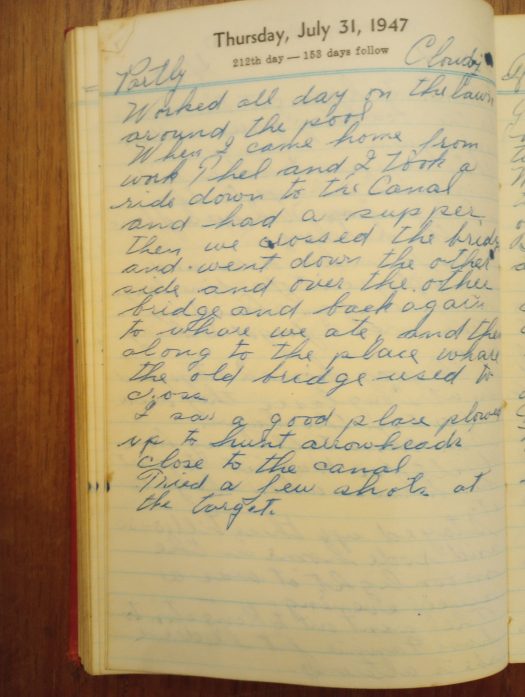 Thursday, July 31, 1947
212th day — 153 days follow
Partly Cloudy
Worked all day on the lawn
around the pool
When I came home from
work Phel and I took a
ride down to the Canal
and had a supper
then we crossed the bridge
and went down the other
side and over the other
bridge and back again
to whare we ate, and then
along to the place whare
the old bridge used to
cross
I saw a good place plowed
up to hunt arrowheads
close to the canal
Tried a few shots at
the target.